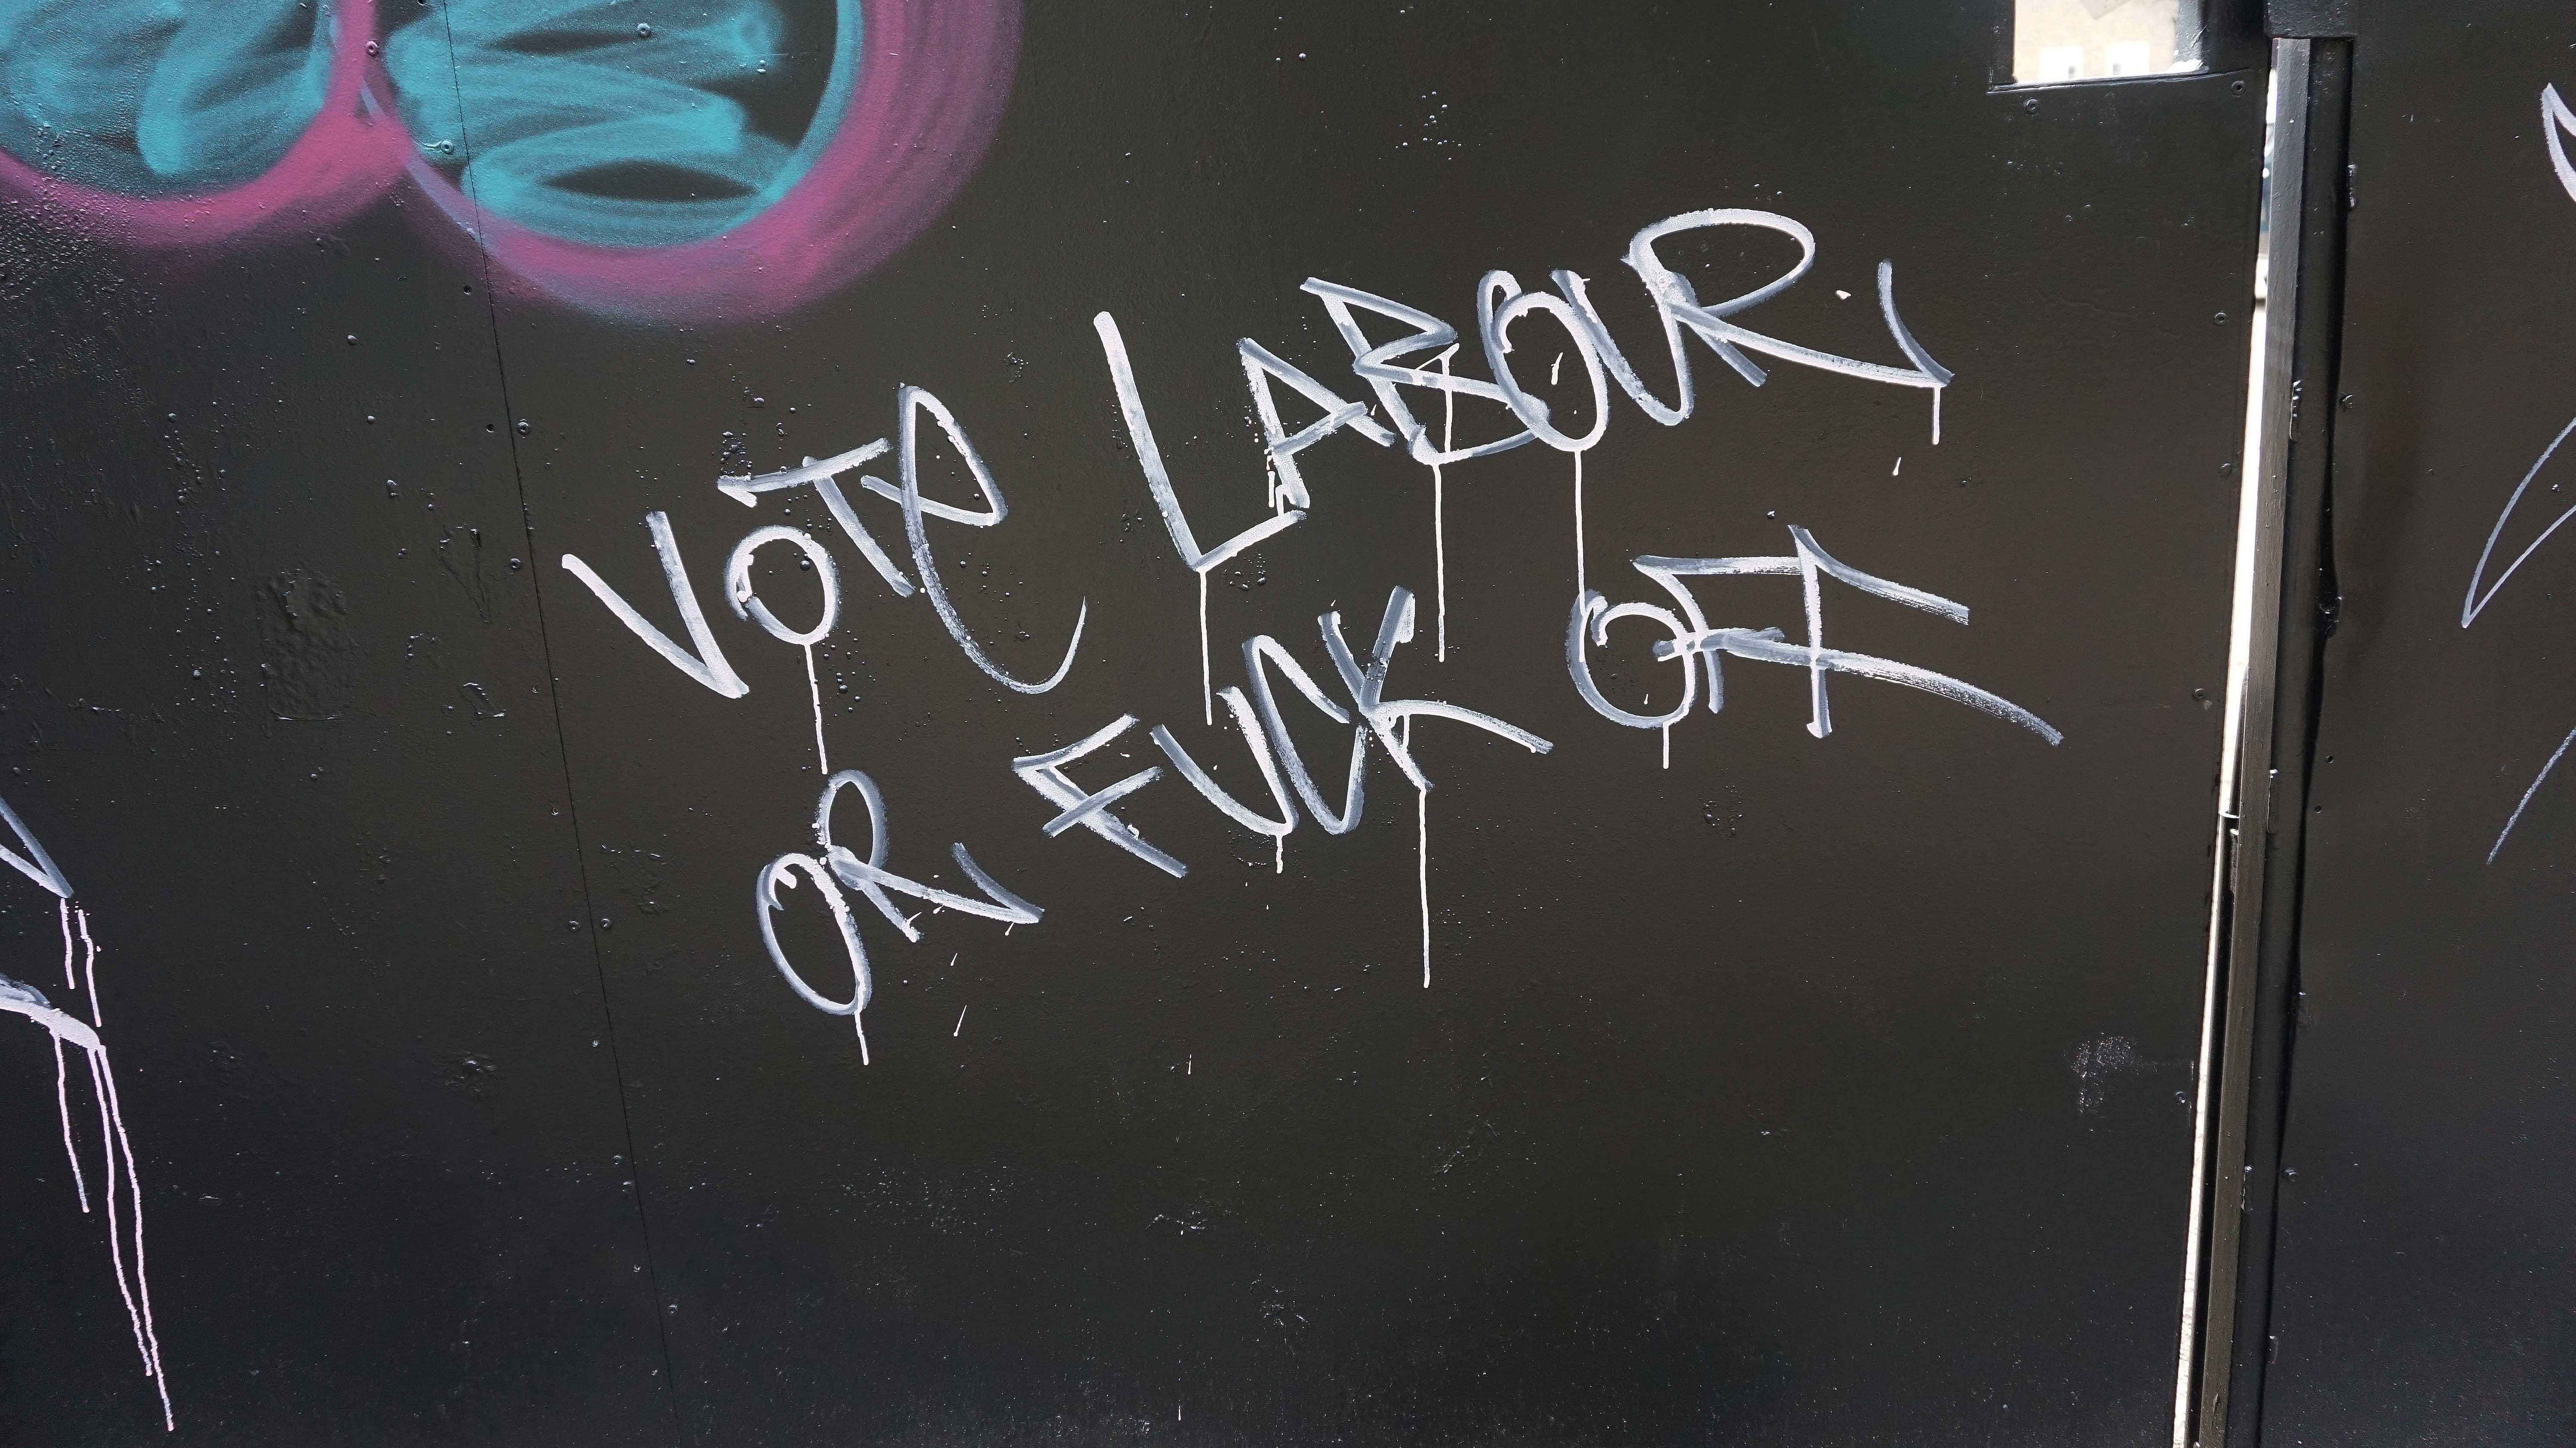 VOTE LABOUR
OR FUCK OFF